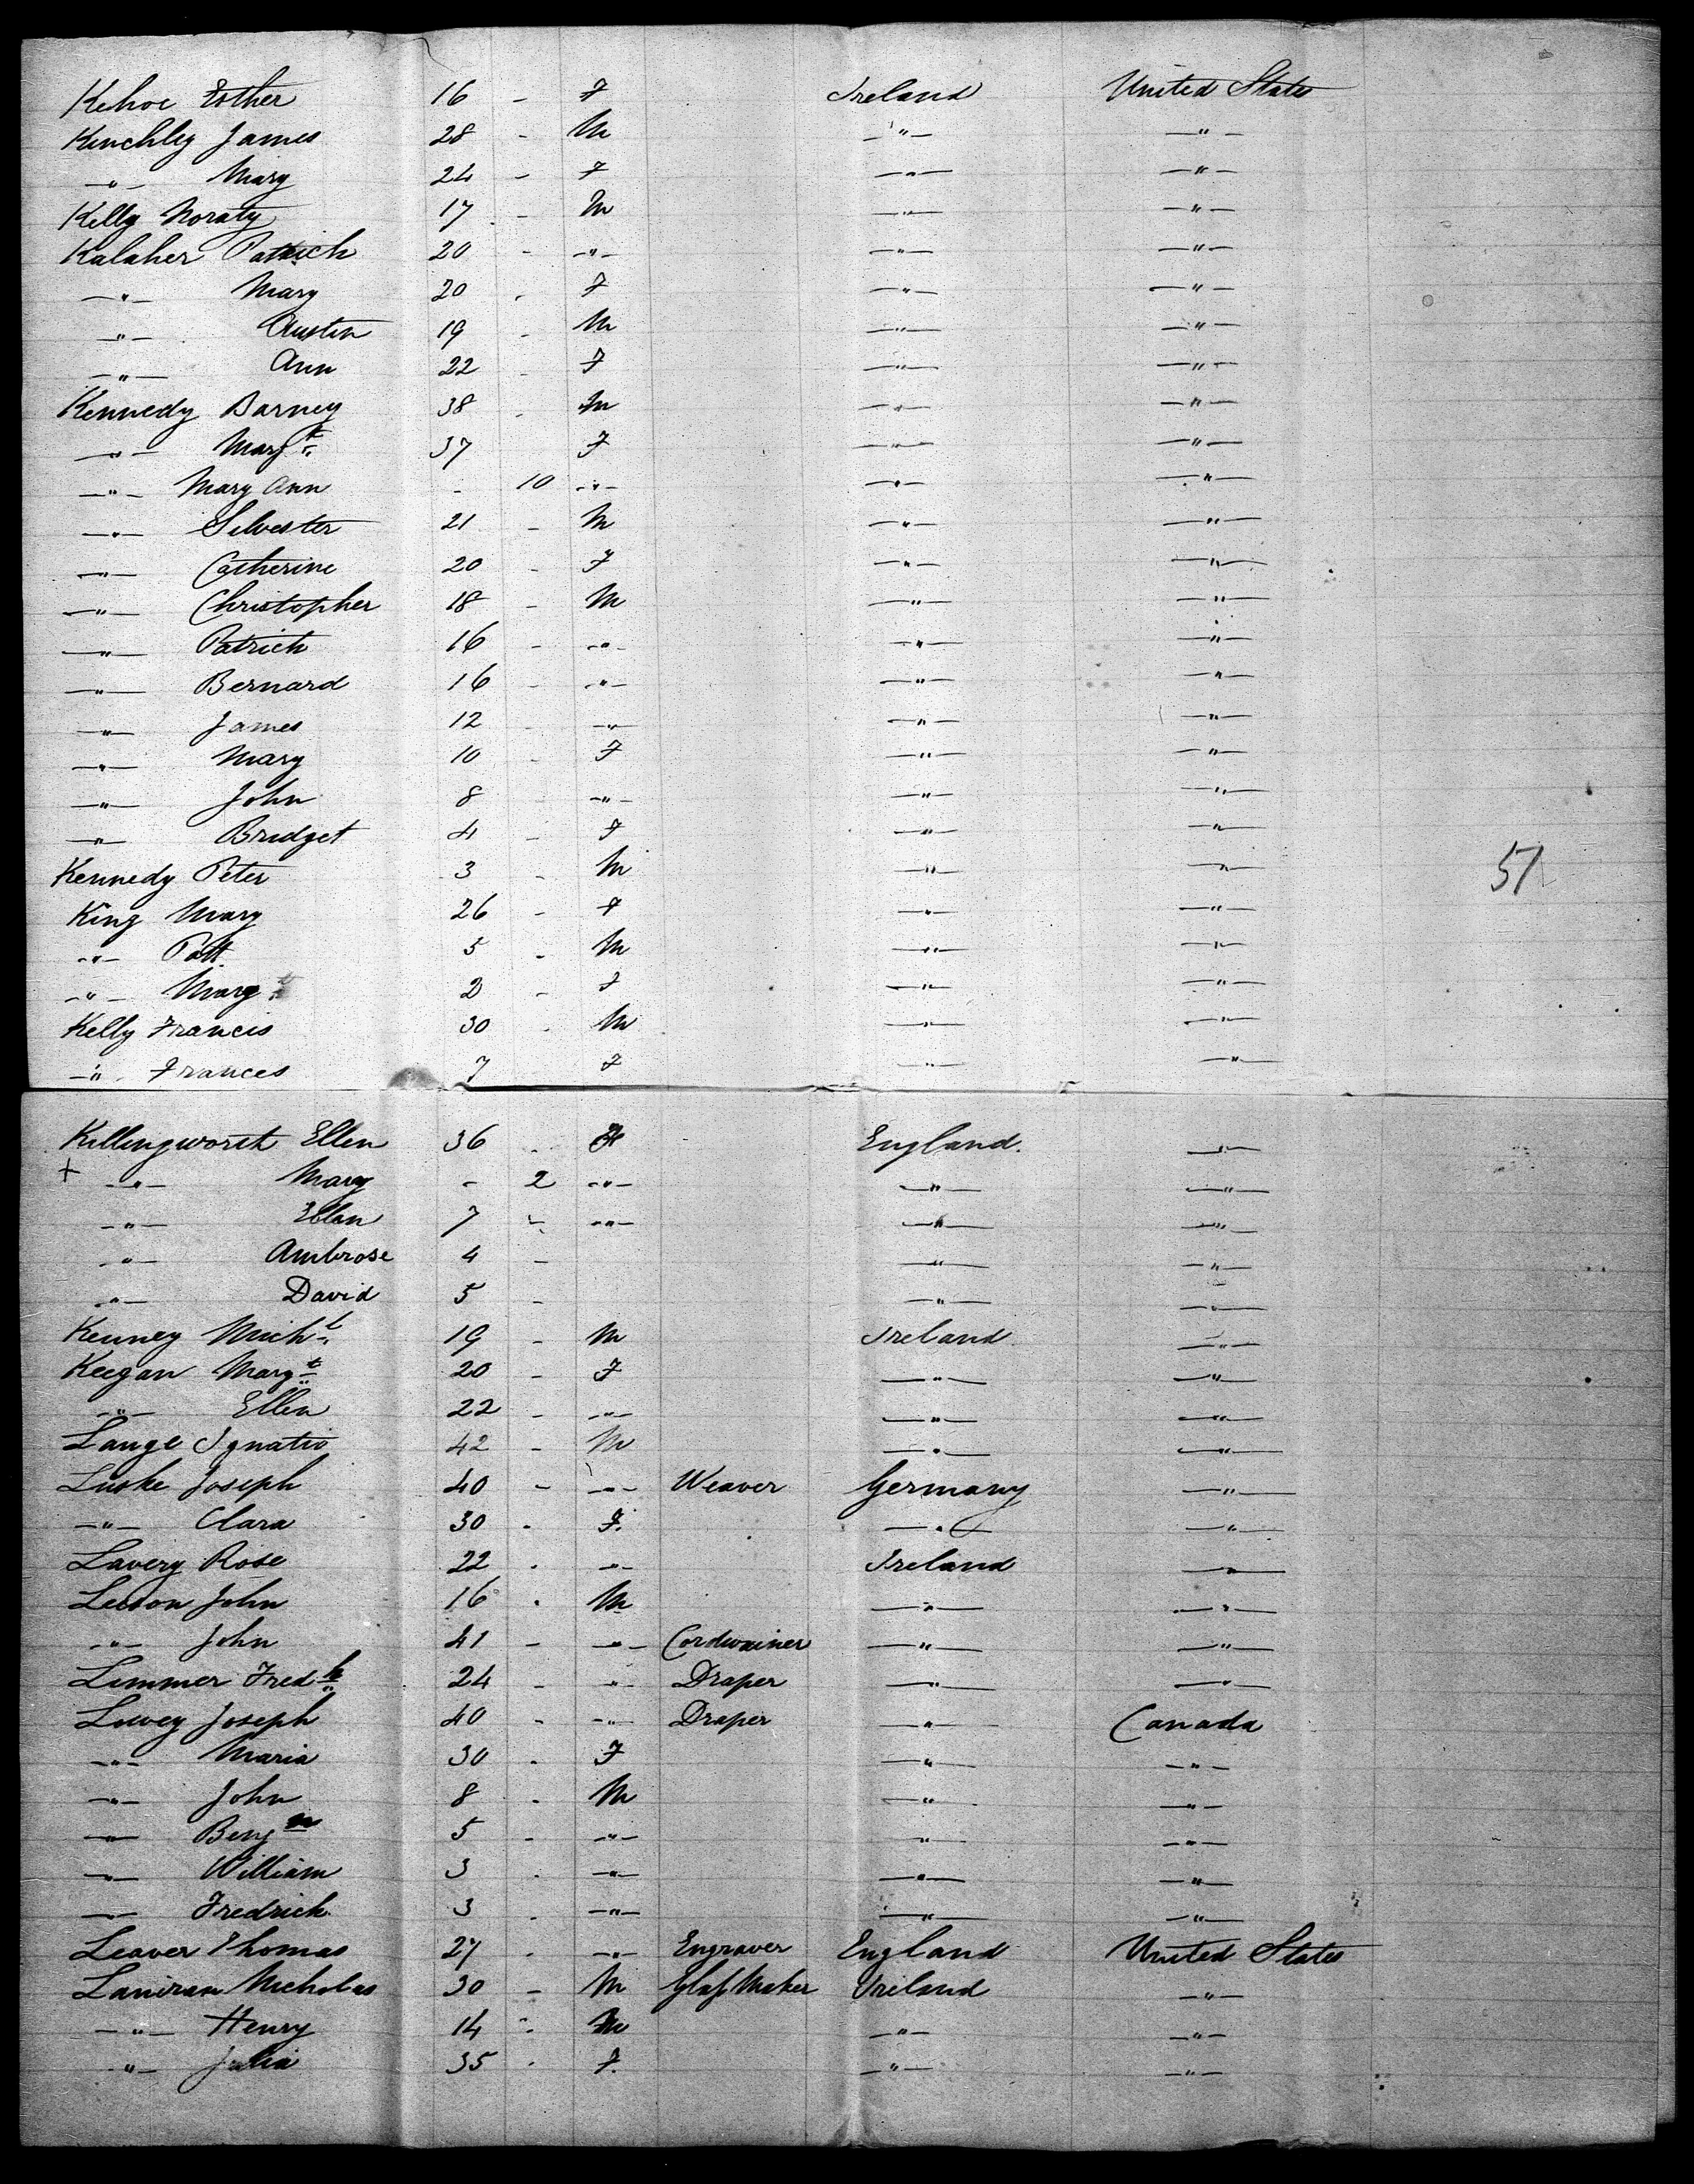 Kehoe Esther 16 - F Ireland United States
Kinchley James 28 - M -"- -"-
-"- Mary 24 - F -"- -"-
Kelly Noraty 17 - M -"- -"-
Kalaher Patrick 20 - -"- -"- -"-
-"- Mary 20 - F -"- -"-
-"- Austin 19 - M -"- -"-
-"- Ann 22 - F -"- -"-
Kennedy Barney 38 - M -"- -"-
-"- Margt 37 F -"- -"-
-"- Mary Ann - 10 -"- -"- -"-
-"- Silvester 21 - M -"- -"-
-"- Catherine 20 - F -"- -"-
-"- Christopher 18 - M -"- -"-
-"- Patrick 16 - -"- -"- -"-
-"- Bernard 16 - -"- -"- -"-
-"- James 12 -"- -"- -"-
-"- Mary 10 - F -"- -"-
-"- John 8 -"- -"- -"-
-"- Bridget 4 - F -"- -"-
Kennedy Peter 3 - M -"- -"- 51
King Mary 26 - F -"- -"-
-"- Patt 5 - M -"- -"-
-"- Margt 2 - F -"- -"-
Kelly Francis 30 - M -"- -"-
-"- Frances 7 F -"- -"-
Killingworth Ellen 36 - F England. -"-
+ -"- Mary - 2 -"- -"- -"-
-"- Ellen 7 - -"- -"- -"-
-"- Ambrose 4 - -"- -"-
-"- David 5 - -"- -"-
Kenney Michl 19 - M Ireland -"-
Keegan Margt 20 - F -"- -"-
-"- Ellen 22 - -"- -"- -"-
Lange Ignatio 42 - M -"- -"-
Luske Joseph 40 - -"- Weaver Germany -"-
-"- Clara 30 - F. -"- -"-
Lavery Rose 22 - -"- Ireland -"-
Leeson John 16 - M -"- -"-
-"- John 41 - -"- Cordwainer -"- -"-
Limmer Fredk 24 - -"- Draper -"- -"-
Lowey Joseph 40 - -"- Draper -"- Canada
-"- Maria 30 - F -"- -"-
-"- John 8 - M -"- -"-
-"- Benjn 5 - -"- -"- -"-
-"- William 3 - -"- -"- -"-
-"- Fredrick 3 - -"- -"- -"-
Leaver Thomas 27 - -"- Engraver England United States
Laniran Nicholas 30 - M Glass Maker Ireland -"-
-"- Henry 14 - M -"- -"-
-"- Julia 35 - F. -"- -"-